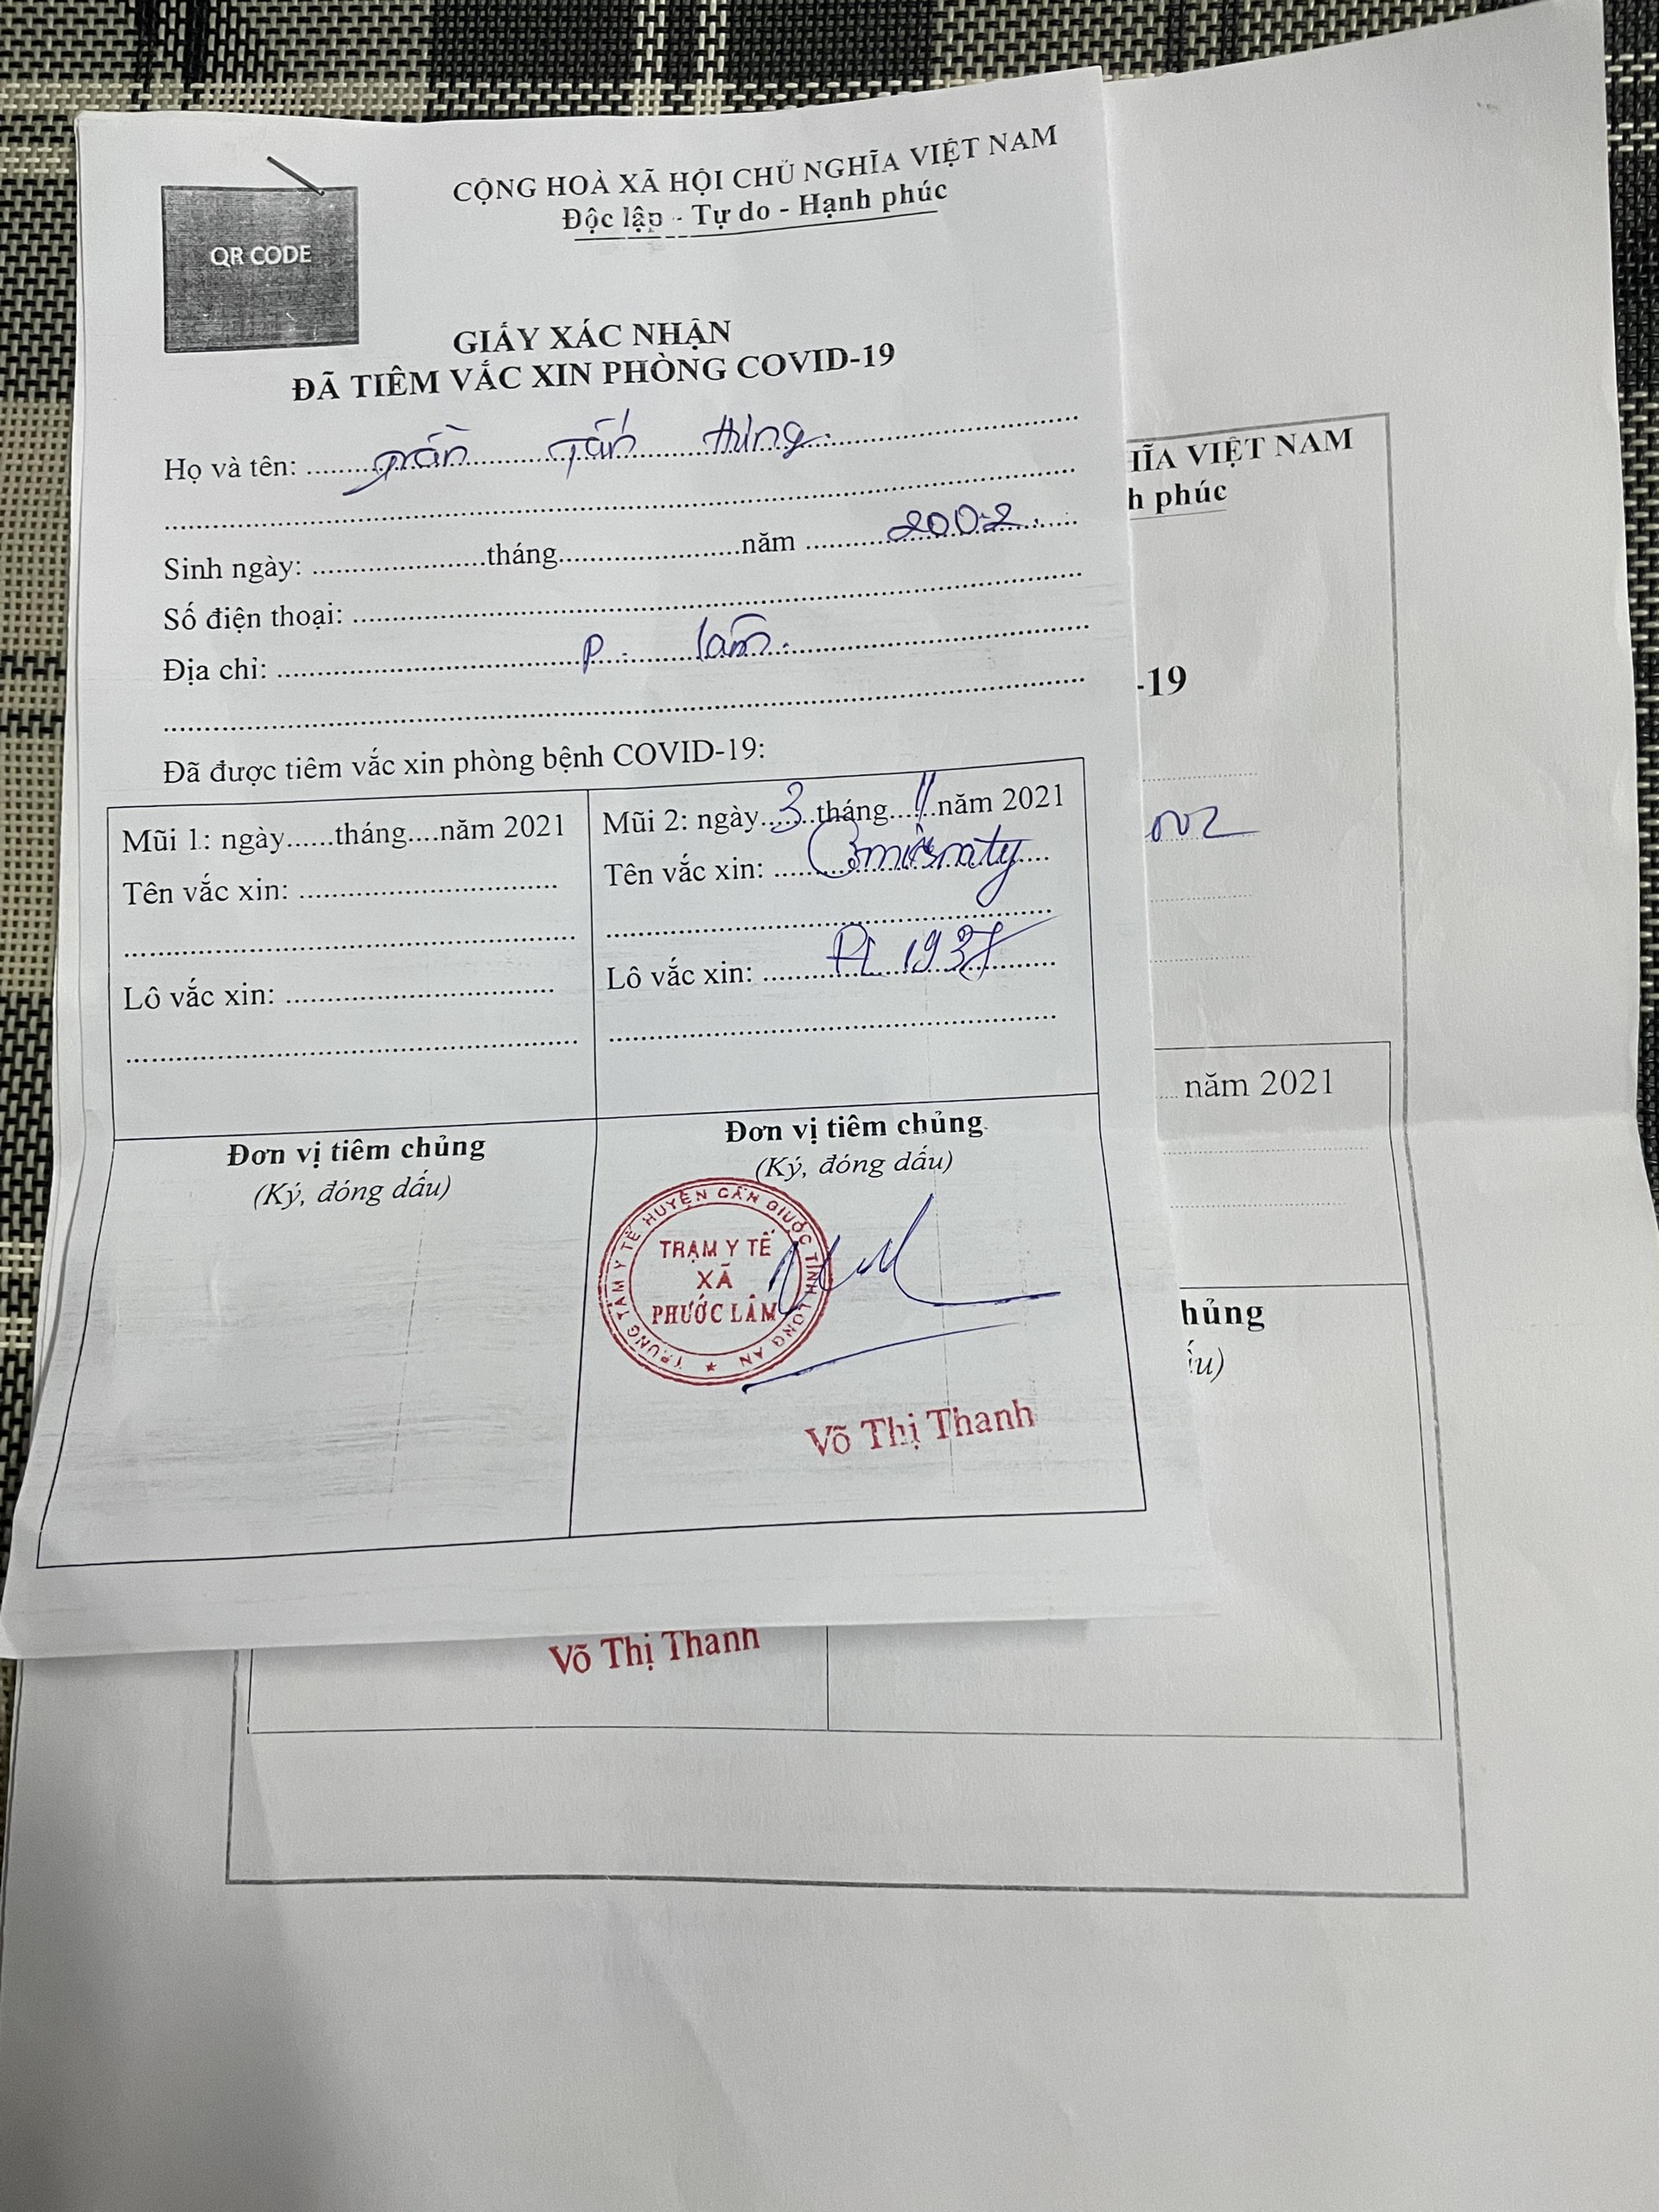 QR CODE
CỘNG HOÀ XÃ HỘI CHỦ NGHĨA VIỆT NAM
Độc lập - Tự do - Hạnh phúc
GIẤY XÁC NHẬN
ĐÃ TIÊM VẮC XIN PHÒNG COVID-19
Họ và tên: ......Trần Tấn Hưng......
Sinh ngày: ......tháng......năm ......2002......
Số điện thoại: ......
Địa chỉ: ......P. Lâm......
Đã được tiêm vắc xin phòng bệnh COVID-19:
Mũi 1: ngày......tháng....năm 2021
Tên vắc xin: ......
Lô vắc xin: ......
Đơn vị tiêm chủng
(Ký, đóng dấu)
Mũi 2: ngày...3...tháng...11...năm 2021
Tên vắc xin: ......
Lô vắc xin: ......
Đơn vị tiêm chủng
(Ký, đóng dấu)
TRUNG TÂM Y TẾ HUYỆN CẦN GIUỘC TỈNH LONG AN
TRẠM Y TẾ
XÃ
PHƯỚC LÂM
Võ Thị Thanh
HĨA VIỆT NAM
h phúc
-19
002
năm 2021
hủng
ấu)
Võ Thị Thanh